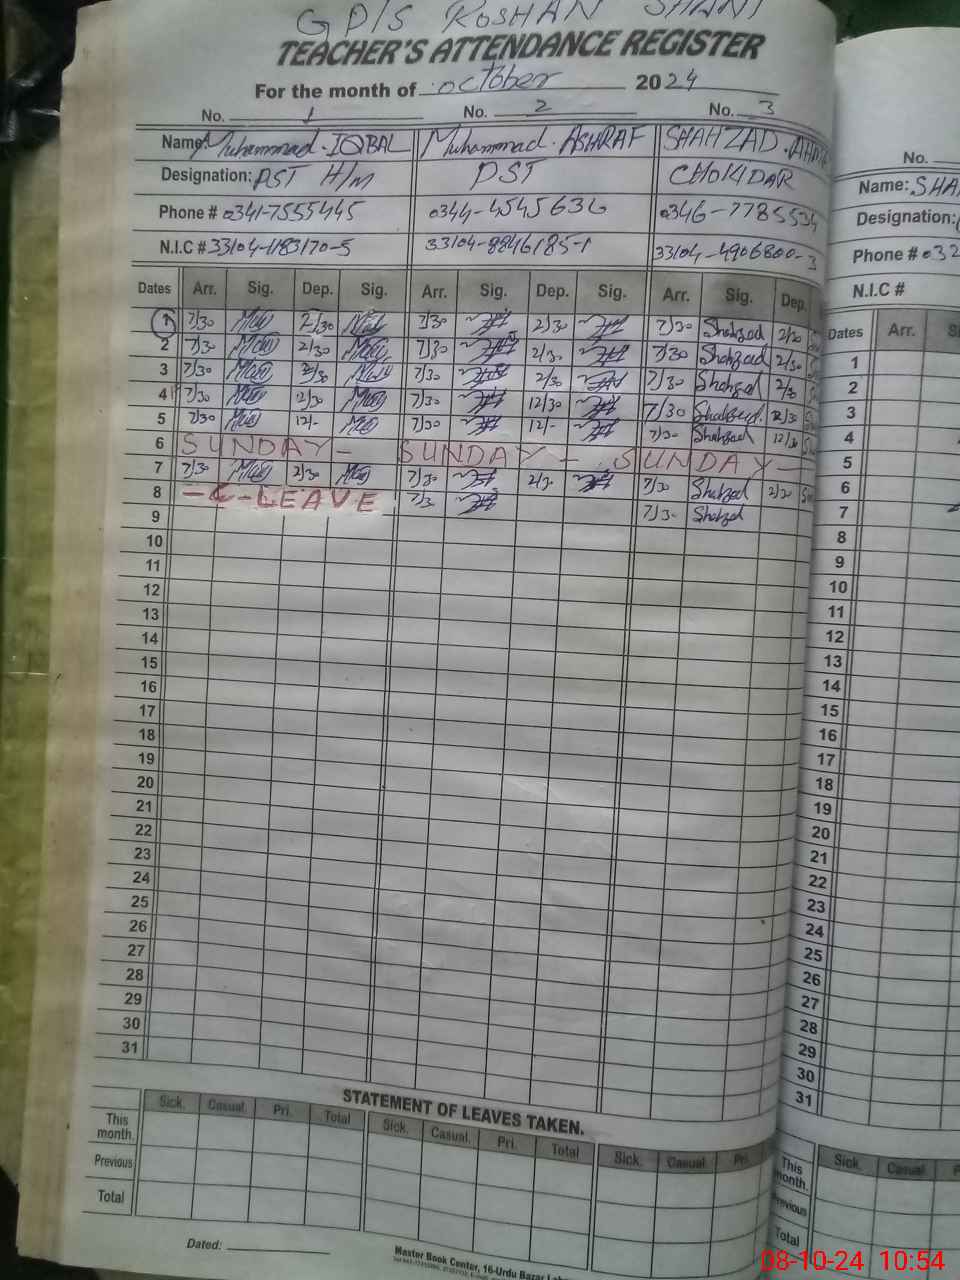 GP/S ROSHAN SHAH
TEACHER'S ATTENDANCE REGISTER
For the month of October 2024
No. 1 No. 2 No. 3
Name: Muhammad. IQBAL Muhammad. ASHRAF SHAHZAD.
Designation: PST H/M PST CHOKIDAR
Phone # 0341-7555445 0344-4545636 0346-7785534
N.I.C # 33104-1183170-5 33104-8846185-1 33104-4906800-3
Dates Arr. Sig. Dep. Sig. Arr. Sig. Dep. Sig. Arr. Sig. Dep.
1 7/30 2/30 7/30 2/30 7/30 Shahzad 2/30
2 7/30 2/30 7/30 2/30 7/30 Shahzad 2/30
3 7/30 2/30 7/30 2/30 7/30 Shahzad 2/30
4 7/30 12/30 7/30 12/30 7/30 Shahzad 12/30
5 7/30 12/- 7/30 12/- 7/30 Shahzad 12/30
6 SUNDAY - SUNDAY - SUNDAY -
7 7/30 2/30 7/30 2/30 7/30 Shahzad 2/30
8 - C - LEAVE 7/3 7/3- Shahzad
9
10
11
12
13
14
15
16
17
18
19
20
21
22
23
24
25
26
27
28
29
30
31
STATEMENT OF LEAVES TAKEN.
Sick. Casual. Pri. Total Sick. Casual. Pri. Total Sick. Casual Pri.
This month.
Previous
Total
Dated:
Master Book Center, 16-Urdu Bazar
No.
Name: SHA
Designation:
Phone # 032
N.I.C #
Dates Arr.
1
2
3
4
5
6
7
8
9
10
11
12
13
14
15
16
17
18
19
20
21
22
23
24
25
26
27
28
29
30
31
Sick. Casual
This month.
Previous
Total
08-10-24 10:54